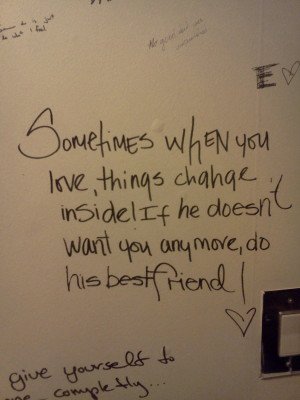 E
Sometimes WHEN you
love, things change
inside! If he doesn't
want you anymore, do
his best friend!
give yourself to
completly...